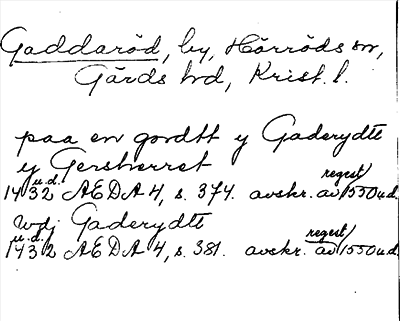 Gaddaröd, by, Hörröds sn,
Gärds hd, Krist. l.
paa en gordtt y Gaderydtt
y Gersherret
1432 u.d. AEDA 4, s. 374. avskr. av regest 1550 u.d.
wdj Gaderydtt
1432 u.d. AEDA 4, s. 381. avskr. av regest 1550 u.d.